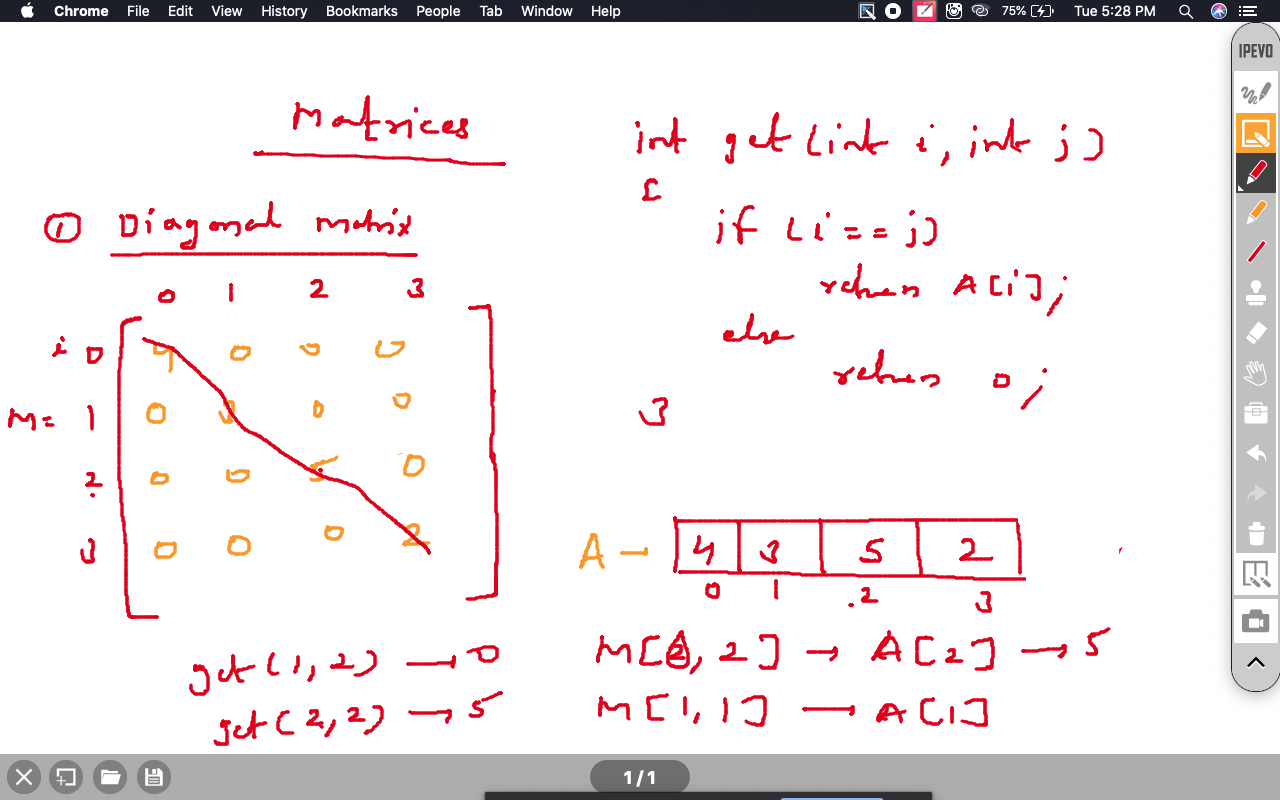 Chrome File Edit View History Bookmarks People Tab Window Help 75% Tue 5:28 PM
IPEVO
Matrices
① Diagonal matrix
0 1 2 3
i 0 4 0 0 0
M= 1 0 3 0 0
2 0 0 5 0
3 0 0 0 2
get(1,2) → 0
get(2,2) → 5
int get(int i, int j)
{
if (i == j)
return A[i];
else
return 0;
}
A → 4 3 5 2
0 1 2 3
M[2, 2] → A[2] → 5
M[1,1] → A[1]
1/1